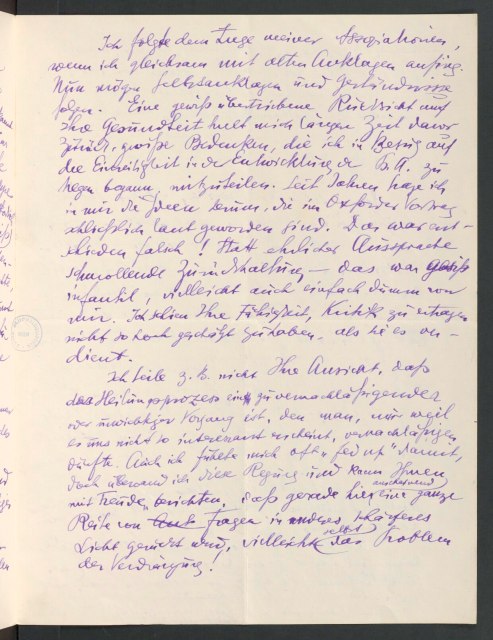 Ich folgte dem Zuge meiner Assoziationen,
wenn ich gleichsam mit alten Anklagen anfing.
Nun mögen Selbstanklagen und Geständnisse
folgen. Eine gewiß übertriebene Rücksicht auf
Ihre Gesundheit hielt mich längere Zeit davor
zurück, gewiße Bedenken, die ich in Bezug auf
die Einseitigkeit in der Entwicklung der P. A. zu
hegen begann, mitzuteilen. Seit Jahren trage ich
in mir die Ideen herum, die im Oxforder Vortrag
schließlich laut geworden sind. Das war ent-
schieden falsch! Statt ehrlicher Aussprache
schmollende Zurückhaltung – das war gewiß
infantil, vielleicht auch einfach dumm von
mir. Ich schien Ihre Fähigkeit, Kritik zu ertragen
nicht so hoch geschätzt zu haben, als sie es ver-
dient.
Ich teile z. B. nicht Ihre Ansicht, daß
der Heilungsprozess ein zu vernachläßigender
oder unwichtiger Vorgang ist, den man, nur weil
er uns nicht so interessant erscheint, vernachläßigen
dürfte. Auch ich fühlte mich oft „fed up" damit,
doch überwand ich diese Regung und kann Ihnen
mit Freude berichten, daß gerade hier eine ganze
anscheinend
Reihe von Fragen in anderes, schärferes
Licht gerückt wird, vielleicht selbst das Problem
der Verdrängung!